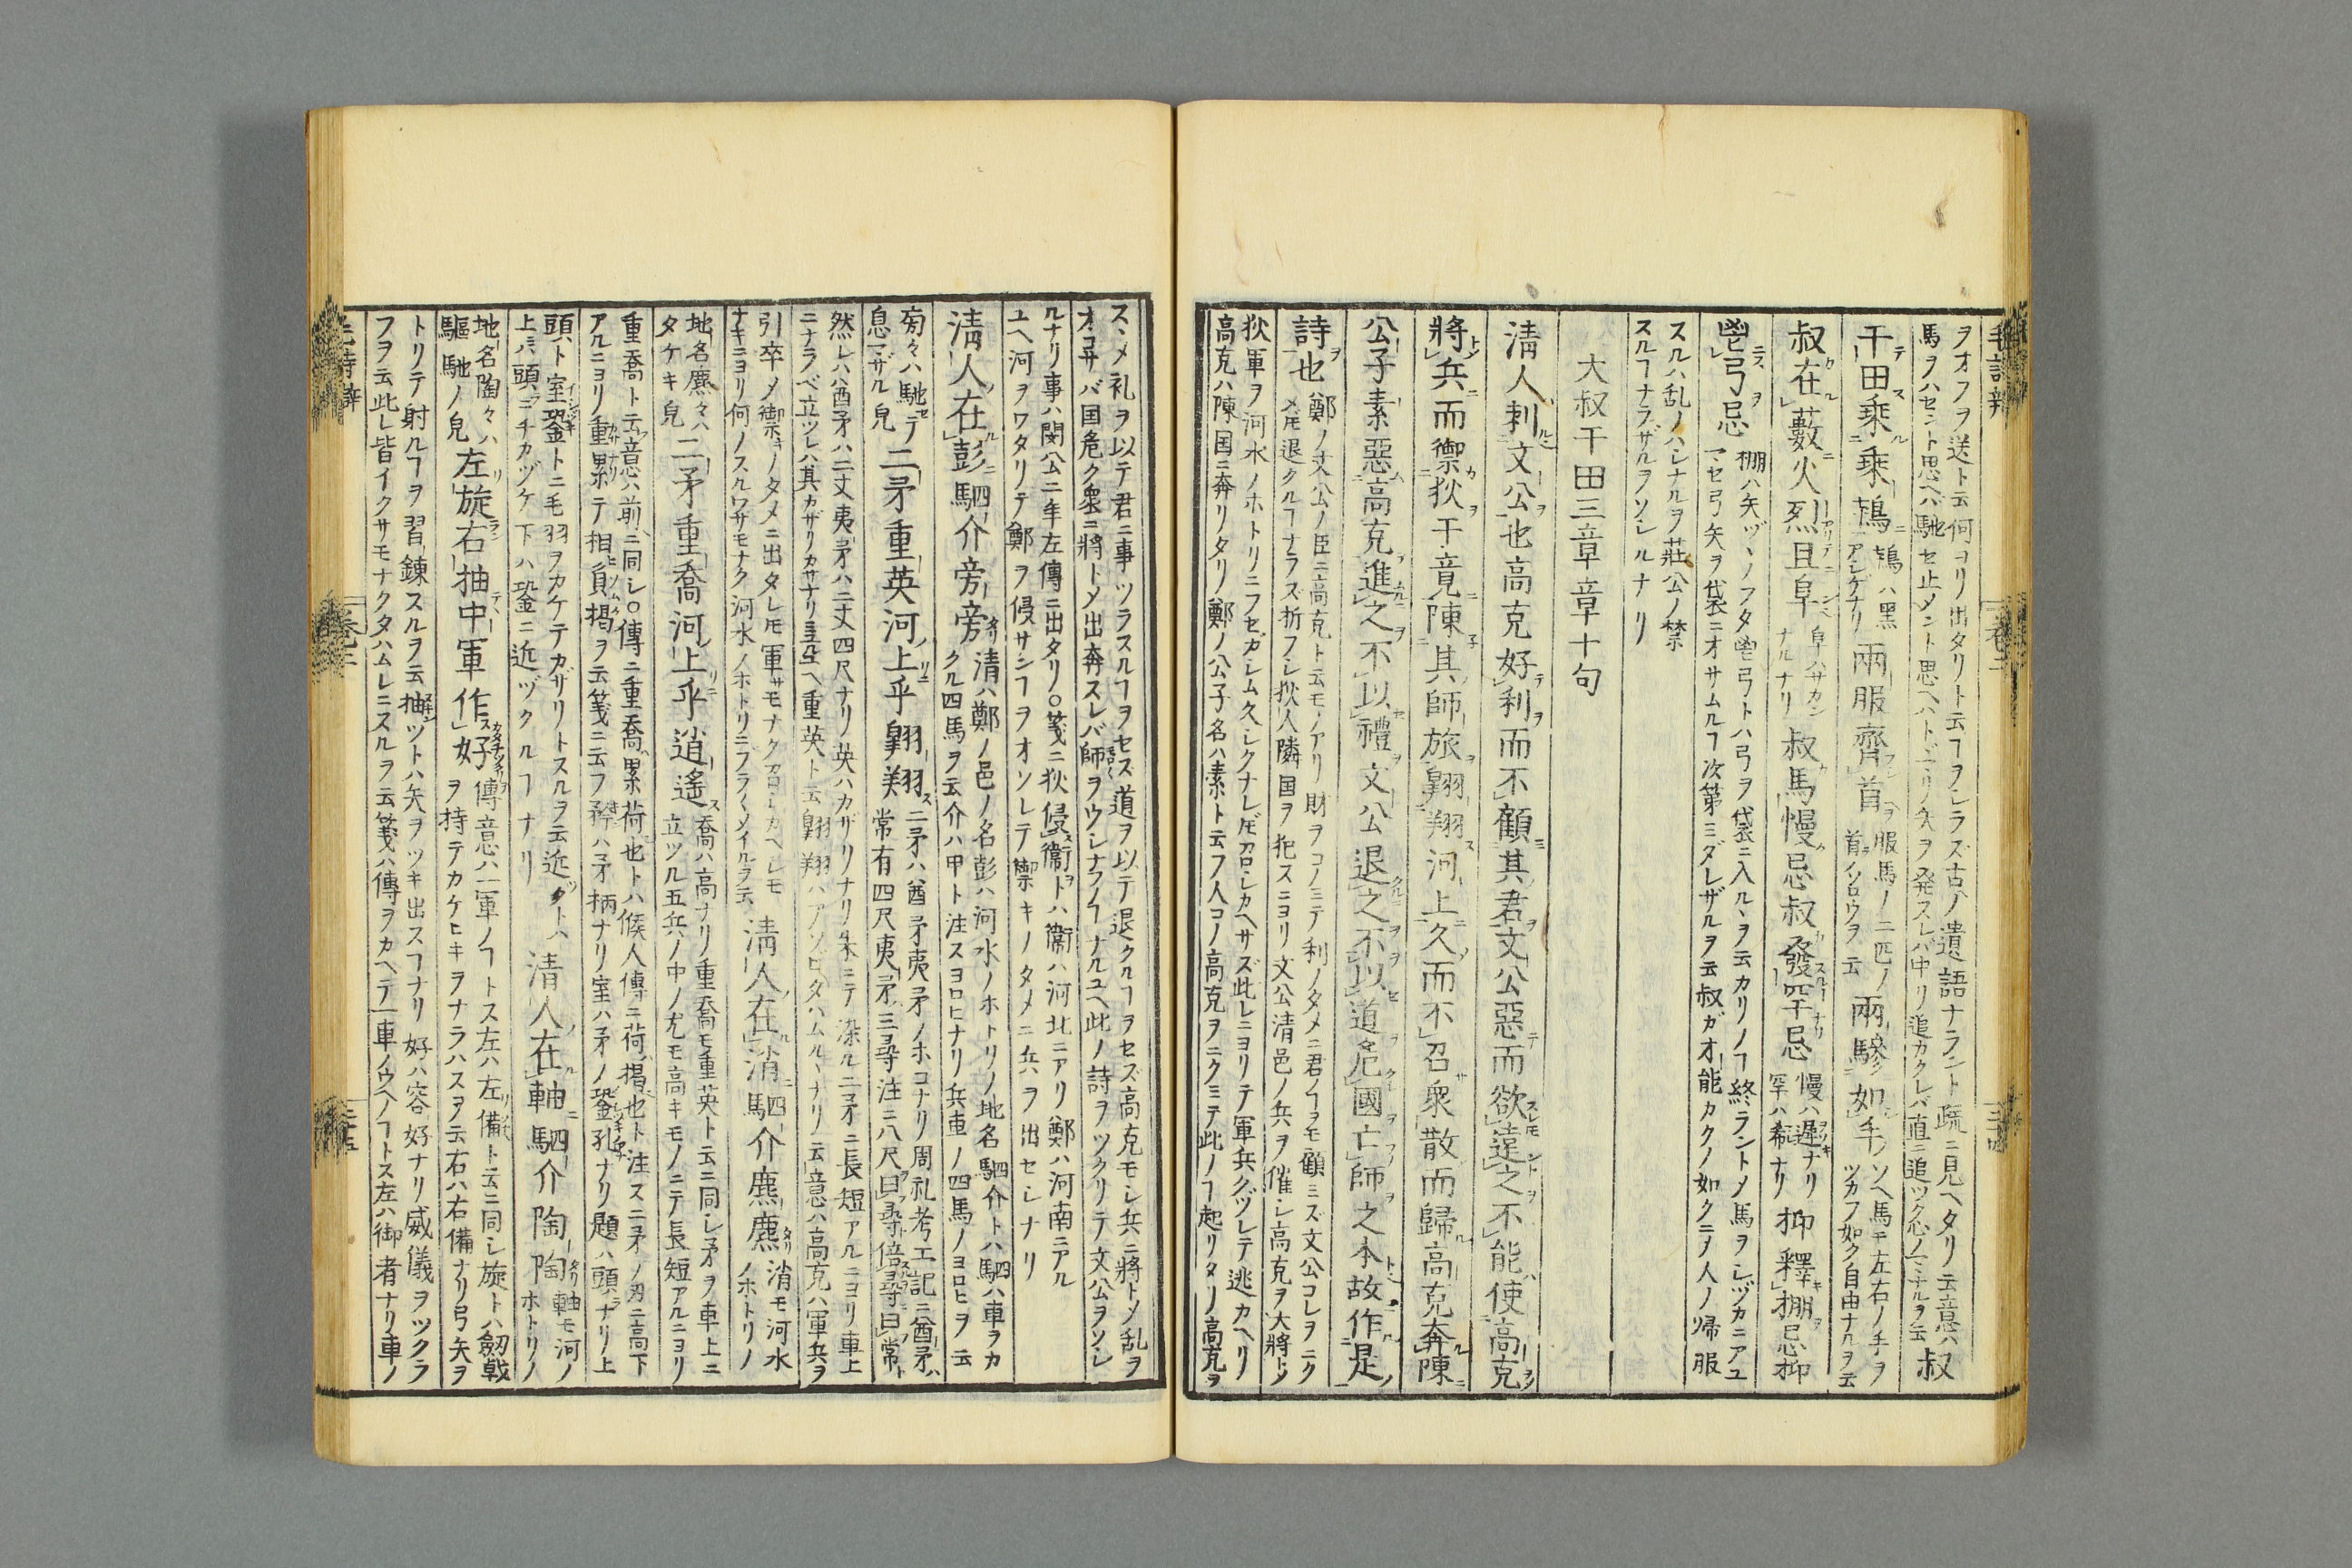 毛詩辨
卷二
ヲオフヲ送ト云何ヨリ出タリト云ヿヲシラズ古ノ遺語ナラント疏ニ見ヘタリ云意ハ叔
馬ヲハセント思ヘバ馳セ止メント思ヘハトドマリ矢ヲ発スレバ中リ追カクレバ直ニ追ツク心ノママナルヲ云
于田乘乘鴇 鴇ハ黒アシゲナリ 兩服齊首 服馬ノ二匹ノ首イソロウヲ云 兩驂如手 ソヘ馬モ左右ノ手ヲツカフ如ク自由ナルヲ云
叔在藪火烈且阜 阜ハサカンナルナリ 叔馬慢忌叔發罕忌 慢ハ遅ナリ罕ハ希ナリ 抑釋掤忌抑
鬯弓忌 掤ハ矢ヅヽノフタ鬯弓トハ弓ヲ袋ニ入ルヽヲ云カリノヿ終ラントメ馬ヲシヅカニアユ
マセ弓矢ヲ袋ニオサムルヿ次第ミダレザルヲ云叔ガオ能カクノ如クニノ人ノ帰服
スルハ乱ノハシナルヲ莊公ノ禁
スルヿナラザルヲソシルナリ
大叔于田三章章十句
淸人刺文公也高克好利而不顧其君文公惡而欲遠之不能使高克
將兵而禦狄于竟陳其師旅翺翔河上久而不召衆散而歸高克奔陳
公子素惡高克進之不以禮文公退之不以道危國亡師之本故作是
詩也 鄭ノ文公ノ臣ニ高克ト云モノアリ財ヲコノミテ利ノタメニ君ノヿヲモ顧ミズ文公コレヲニク
メ𪜈退クルヿナラズ折フシ狄人隣国ヲ犯スニヨリ文公清邑ノ兵ヲ催シ高克ヲ大將トメ
狄軍ヲ河水ノホトリニフセガシム久シクナレ𪜈召シカヘサズ此レニヨリテ軍兵クヅレテ逃カヘリ
高克ハ陳国ニ奔リタリ鄭ノ公子名ハ素ト云フ人コノ高克ヲニクミテ此ノヿ起リタリ高克ヲ
スヽメ礼ヲ以テ君ニ事ツラスルヿヲセス道ヲ以テ退クルヿヲセズ高克モシ兵ニ將トメ乱ヲ
オコサバ国危ク衆ニ將トメ出奔スレバ師ヲウシナフヿナルユヘ此ノ詩ヲツクリテ文公ヲソシ
ルナリ事ハ閔公二年左傳ニ出タリ○箋ニ狄侵衞トハ衞ハ河北ニアリ鄭ハ河南ニアル
ユヘ河ヲワタリテ鄭ヲ侵サンヿヲオソレテ禦キノタメニ兵ヲ出セシナリ
淸人在彭駟介旁旁 清ハ鄭ノ邑ノ名彭ハ河水ノホトリノ地名駟介トハ駟ハ車ヲカ
クル四馬ヲ云介ハ甲ト注スヨロヒナリ兵車ノ四馬ノヨロヒヲ云
旁々ハ馳セテ
息マザル皃 二矛重英河上乎翺翔 二矛ハ酋矛夷矛ノホコナリ周礼考工記ニ酋矛ハ
常有四尺夷矛三尋注ニ八尺曰尋倍尋曰常ト
然レハ酋矛ハ二丈夷矛ハ二丈四尺ナリ英ハカザリナリ朱ニテ染ル二矛ニ長短アルニヨリ車上
ニナラベ立ツレハ其カザリカサナリ見ユルユヘ重英ト云翺翔ハアソビタハムルヽナリ云意ハ高克ハ軍兵ヲ
引卒メ禦キノタメニ出タレ𪜈軍サモナク召シカヘレモ
ナキニヨリ何ノスルワサモナク河水ノホトリニブラ〱メイルヲ云 淸人在消駟介麃麃 消モ河水ノホトリノ
地名麃々ハ
タケキ皃 二矛重喬河上乎逍遙 喬ハ高ナリ重喬モ重英ト云ニ同シ矛ヲ車上ニ
立ツル五兵ノ中ノ尤モ高キモノニテ長短アルニヨリ
重喬ト云意ハ前ニ同シ○傳ニ重喬累荷也トハ候人傳ニ荷ハ揭也ト注ス二矛ノ刃ニ高下
アルニヨリ重累テ相負揭ヲ云箋ニ云フ矜ハ矛柄ナリ室ハ矛ノ銎孔ナリ題ハ頭ナリ上
頭ト室銎トニ毛羽ヲカケテカザリトスルヲ云近トハ
上ハ頭ニチカヅケ下ハ銎ニ近ヅクルヿナリ 淸人在軸駟介陶陶 軸モ河ノホトリノ
地名陶々ハ
驅馳ノ皃 左旋右抽中軍作好 傳意ハ一軍ノヿトス左ハ左備ト云ニ同シ旋トハ劔戟
ヲ持テカケヒキヲナラハスヲ云右ハ右備ナリ弓矢ヲ
トリテ射ルヿヲ習錬スルヲ云抽ツトハ矢ヲツキ出スヿナリ好ハ容好ナリ威儀ヲツクラ
フヲ云此レ皆イクサモナクタハムレニスルヲ云箋ハ傳ヲカヘテ一車ノウヘノヿトス左ハ御者ナリ車ノ